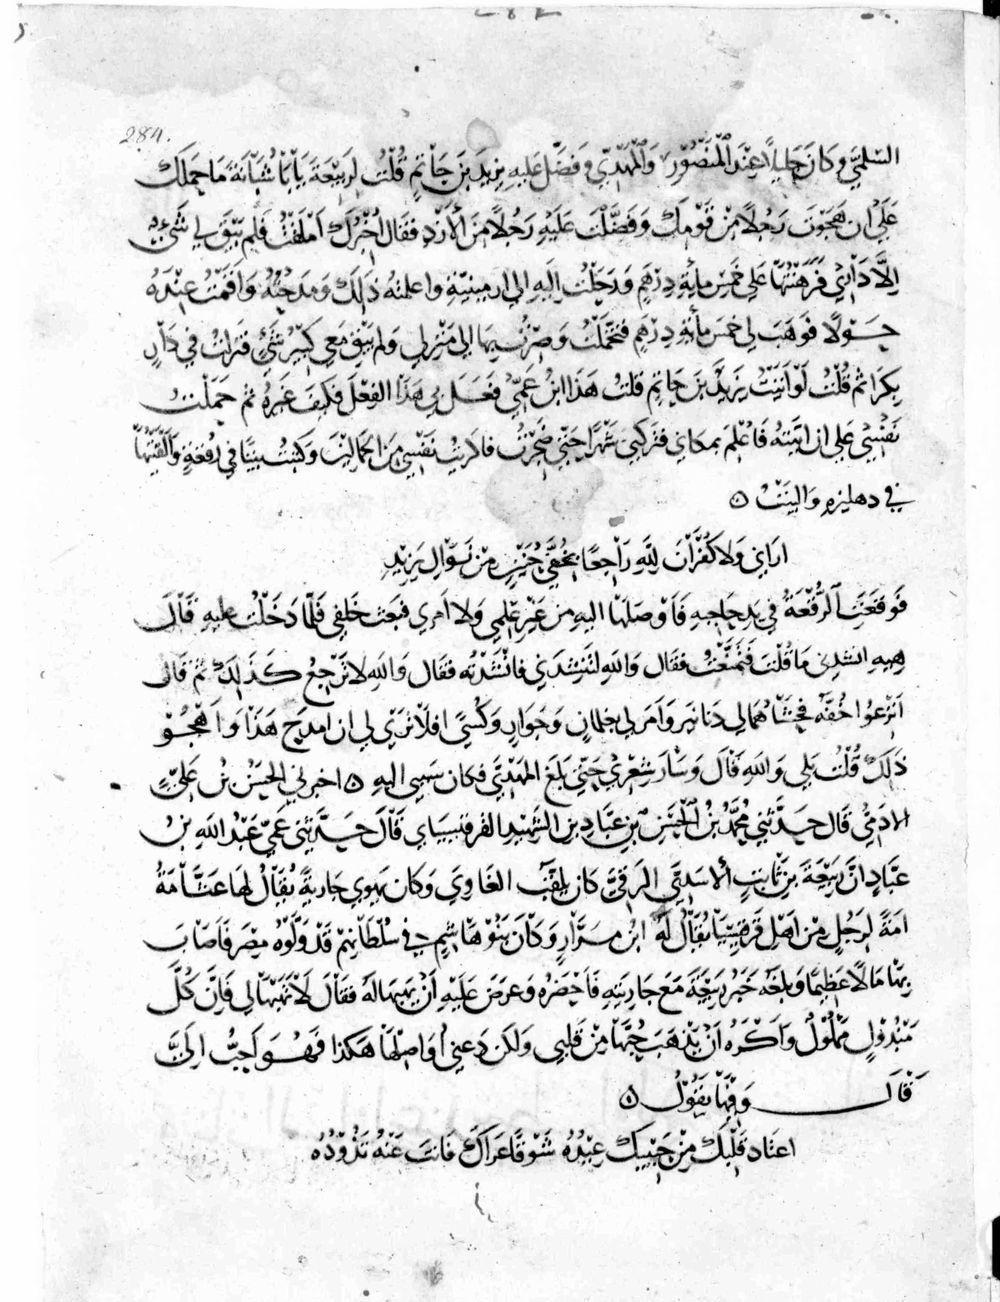 284.
السُّلَمِيِّ وَكَانَ جَلِيلاً عِنْدَ الْمَنْصُورِ وَالْمَهْدِيِّ وَفَضَّلَ عَلَيهِ يَزِيدَ بنَ حَاتِمٍ قُلْتُ لِرَبِيْعَةَ يَا بَا شَبَابَةَ مَا حَمَلَكَ
عَلَى ان هَجَوْتَ رَجُلاً مِنْ قَوْمِكَ وَفَضَّلْتَ عَلَيْهِ رَجُلاً مِنَ الْأَزْدِ فقَالَ أُخْبِرُكَ أَمْلَقْتُ فَلَم يَبْقَ لِي شَيْءٌ
اِلَّا دَارِي فَرَهَنْتُهَا عَلَى خَمْسِ مِأيَةِ دِرْهَمٍ وَرَحَلْتُ اِلَيهِ الى ارمِينِيَةِ واعلمتهُ ذَلِكَ وَمَدَحْتُهُ وَاَقَمْتُ عِنْدَهُ
حَوْلًا فوَهَبَ لِي خمسَ مأيَةِ دِرْهَمٍ فتحَمَّلْتُ وَصِرْتُ بِهَا الى مَنْزِلي وَلم يَبْقَ مَعِي كَبِيْرُ شَيْءٍ فنَزَلتُ في دَارٍ
بِكِرَا ثم قُلْتُ لَوْ اَتَيْتُ يَزِيدَ بنَ حَاتِمٍ قلتُ هَذَا ابنُ عَمّي فَعَلَ بِي هَذَا الفِعْلَ فكَيفَ غَيرُهُ ثم حَمَلْتُ
نَفْسِي عَلى ان اتيتهُ فَاُعْلِمَ بمكاني فتركني شَهْرًا حَتّى ضَجِرْتُ فاكريتُ نَفْسِي مِنَ الحَمّالينَ وَكتبتُ بيتًا في رُقعَةٍ وَاَلْقَيْتُهَا
في دهليزهِ وَالبَيْتُ ۞
اراني وَلا كُفْرَانَ لِلَّهِ رَاجِعًا بِخُفَّيْ حُنَيْنٍ مِنْ نَوَالِ يَزِيْدِ
فَوَقَعَتِ الرُّقْعَةُ في يَدِ حَاجِبِهِ فَاَوْصَلَهَا اليهِ مِن غَيرِ عِلْمِي وَلا اَمري فبَعَثَ خَلفِي فَلَمَّا دَخَلْتُ عَليهِ قَالَ
هِيهِ انشدني مَا قُلْتَ فَتَمَنَّعْتُ فقال وَاللهِ لتُنْشِدَنِّي فانْشَدْتُه فقَال وَاللهِ لا تَرْجِعُ كَذَلِكَ ثم قَال
اَنزِعُوا خُفَّيْهِ فَحَشَاهُمَا لي دَنانيرَ وَاَمَرَ لِي بِغِلمانٍ وَجَوَارٍ وَكُسًى افلا تَرَى لي ان امدَحَ هَذَا وَاَهْجُوَ
ذَلكَ قُلتُ بَلى وَاللهِ قَالَ وَسَارَ شِعْرِي حَتّى بَلَغَ المَهْدِيَّ فكان سَبَبي اليهِ ۞ اخبرني الحَسَنُ بْنُ عَلِيٍّ
الادَمِيُّ قال حَدَّثَنِي مُحَمَّدُ بْنُ الْحَسَنِ بنِ عَبَّادِ بنِ الشَّهِيْدِ القرقيسيايي قَالَ حَدَّثَنِي عَمِّي عَبْدُ اللهِ بنُ
عَبَّادٍ اَنَّ رَبِيْعَةَ بنَ ثَابِتٍ الاسَدِيَّ الرَّقِّيَّ كان يلقَّبُ الغَاوِيَ وَكان يَهوي جَارِيةً يُقَالُ لهَا عَثْامَةُ
اَمَةً لِرَجُلٍ مِنْ اَهْلِ قَرقِيسيَا يُقَالُ لَهُ ابنُ مَرَّارٍ وَكَانَ بَنُوْ هَاشِمٍ في سُلْطَانِهِمْ قَدْ وَلَّوْهُ مِصْرَ فَاَصَابَ
بِهَا مَالًا عَظِيْمًا وَبلغَهُ خَبَرُ رَبِيْعَةَ مَعَ جَارِيَتِهِ فَاَحْضَرَهُ وَعَرَضَ عَلَيْهِ اَنْ يَهبَهَا لَهُ فقَالَ لاَ تَهَبْهَا لِي فَاِنَّ كُلَّ
مَبْذُوْلٍ مَمْلُوْلٌ وَاَكْرَهُ اَنْ يَذْهَبَ حُبُّهَا مِنْ قَلْبي وَلكن دَعني اُوَاصِلْهَا هَكَذا فَهُوَ اَحَبُّ اِلَيَّ
قَالَ وَفِيْهَا يَقُوْلُ ۞
اعتَادَ قَلْبَكَ مِنْ حَبِيْبِكَ عِيْدُهُ شَوْقًا عَرَاكَ فَاَنتَ عَنْهُ تَذُوْدُهُ